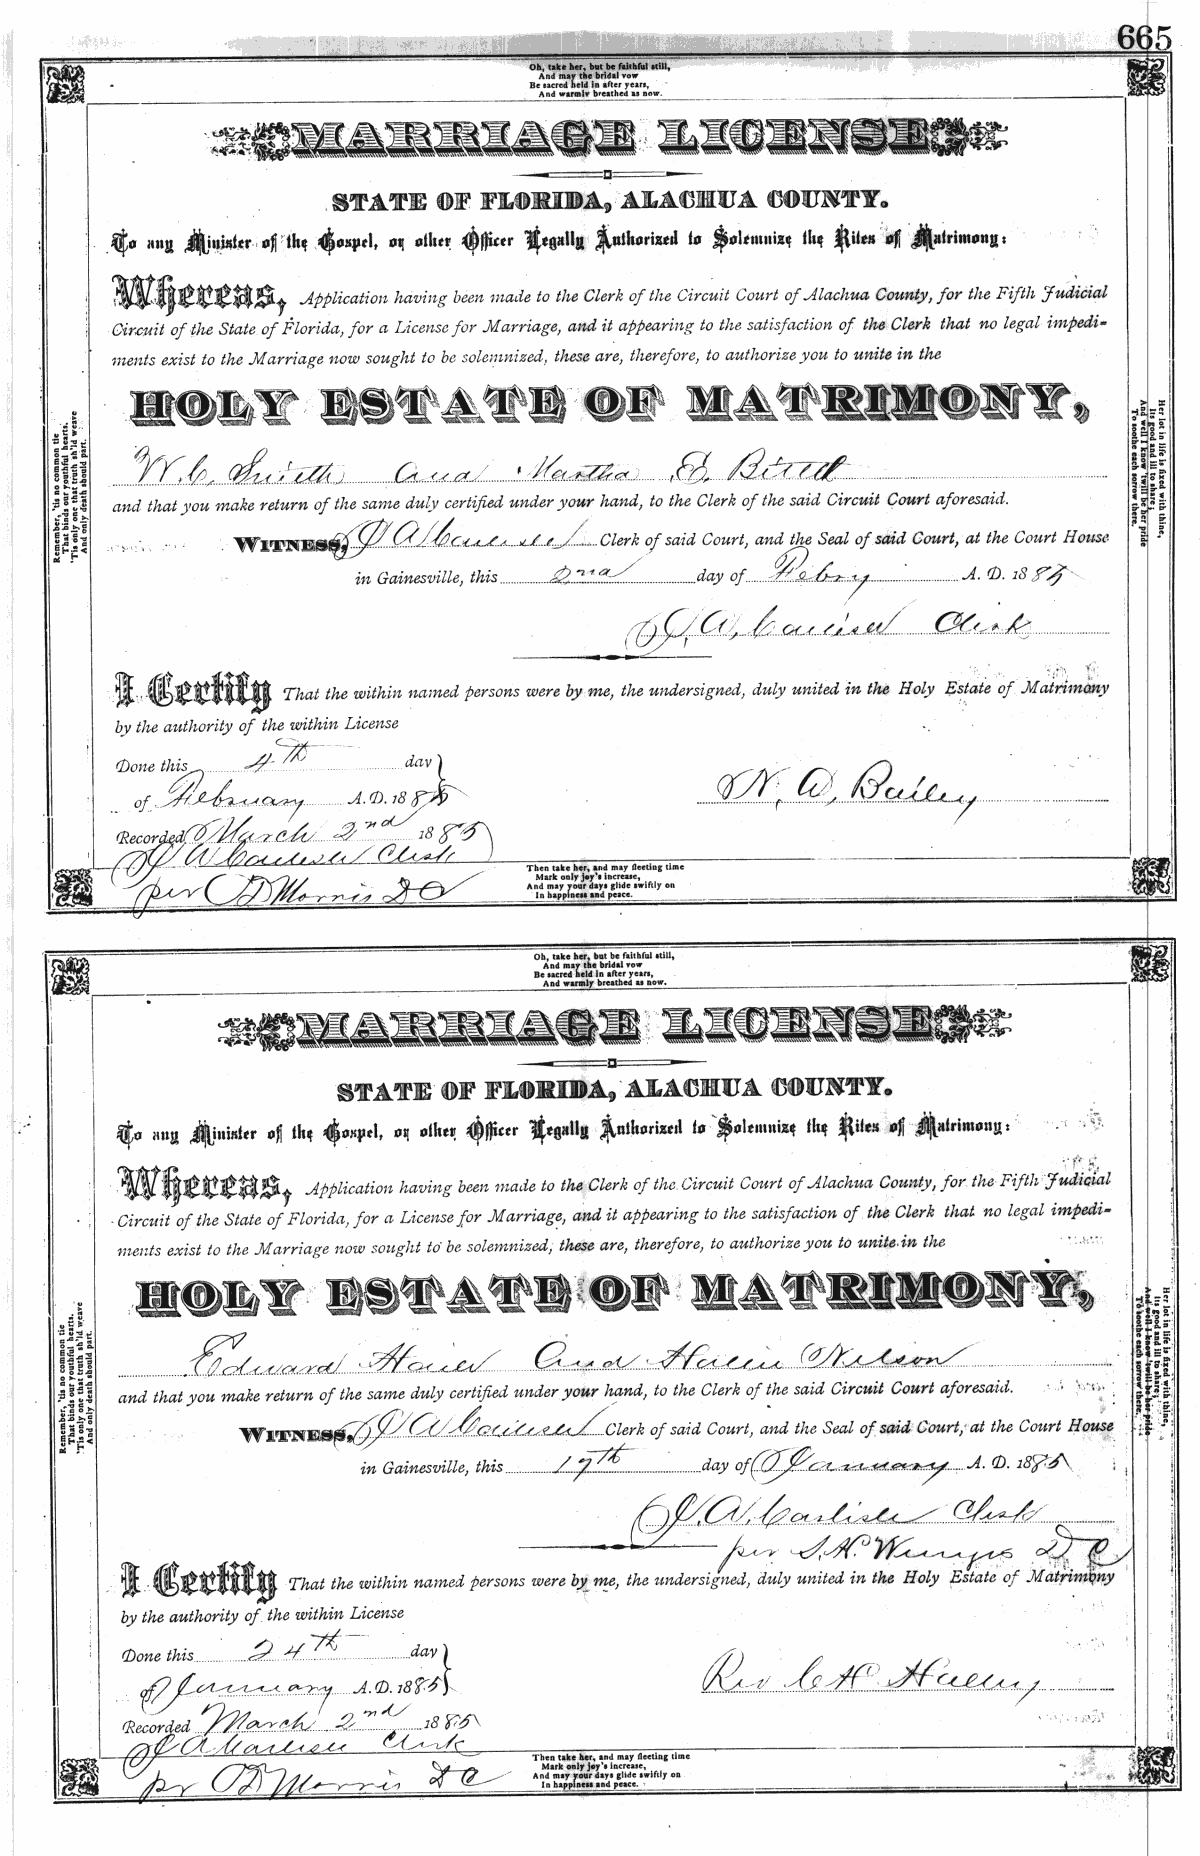 665
Oh, take her, but be faithful still,
And may the bridal vow
Be sacred held in after years,
And warmly breathed as now.
MARRIAGE LICENSE
STATE OF FLORIDA, ALACHUA COUNTY.
To any Minister of the Gospel, or other Officer Legally Authorized to Solemnize the Rites of Matrimony:
Whereas, Application having been made to the Clerk of the Circuit Court of Alachua County, for the Fifth Judicial
Circuit of the State of Florida, for a License for Marriage, and it appearing to the satisfaction of the Clerk that no legal impedi-
ments exist to the Marriage now sought to be solemnized, these are, therefore, to authorize you to unite in the
HOLY ESTATE OF MATRIMONY,
W. C. Smith and Martha E.
and that you make return of the same duly certified under your hand, to the Clerk of the said Circuit Court aforesaid.
WITNESS, J A Carlisle Clerk of said Court, and the Seal of said Court, at the Court House
in Gainesville, this 2nd day of Febry A. D. 1885
J. A. Carlisle Clerk
I Certify That the within named persons were by me, the undersigned, duly united in the Holy Estate of Matrimony
by the authority of the within License
Done this 4th day
of February A. D. 1885
N. A. Bailey
Recorded March 2nd 1885
J A Carlisle Clerk
per C D Morris D C
Then take her, and may fleeting time
Mark only joy's increase,
And may your days glide swiftly on
In happiness and peace.
Remember, 'tis no common tie
That binds our youthful hearts,
'Tis only one that truth sh'ld weave
And only death should part.
Her lot in life is fixed with thine,
Its good and ill to share;
And well I know 'twill be her pride
To soothe each sorrow there.
Oh, take her, but be faithful still,
And may the bridal vow
Be sacred held in after years,
And warmly breathed as now.
MARRIAGE LICENSE
STATE OF FLORIDA, ALACHUA COUNTY.
To any Minister of the Gospel, or other Officer Legally Authorized to Solemnize the Rites of Matrimony:
Whereas, Application having been made to the Clerk of the Circuit Court of Alachua County, for the Fifth Judicial
Circuit of the State of Florida, for a License for Marriage, and it appearing to the satisfaction of the Clerk that no legal impedi-
ments exist to the Marriage now sought to be solemnized, these are, therefore, to authorize you to unite in the
HOLY ESTATE OF MATRIMONY,
Edward and Nelson
and that you make return of the same duly certified under your hand, to the Clerk of the said Circuit Court aforesaid.
WITNESS, J A Carlisle Clerk of said Court, and the Seal of said Court, at the Court House
in Gainesville, this 17th day of January A. D. 1885
J. A. Carlisle Clerk
per S. H. D C
I Certify That the within named persons were by me, the undersigned, duly united in the Holy Estate of Matrimony
by the authority of the within License
Done this 24th day
of January A. D. 1885
Rev C H
Recorded March 2nd 1885
J A Carlisle Clerk
pr C D Morris D C
Then take her, and may fleeting time
Mark only joy's increase,
And may your days glide swiftly on
In happiness and peace.
Remember, 'tis no common tie
That binds our youthful hearts,
'Tis only one that truth sh'ld weave
And only death should part.
Her lot in life is fixed with thine,
Its good and ill to share;
And well I know 'twill be her pride
To soothe each sorrow there.